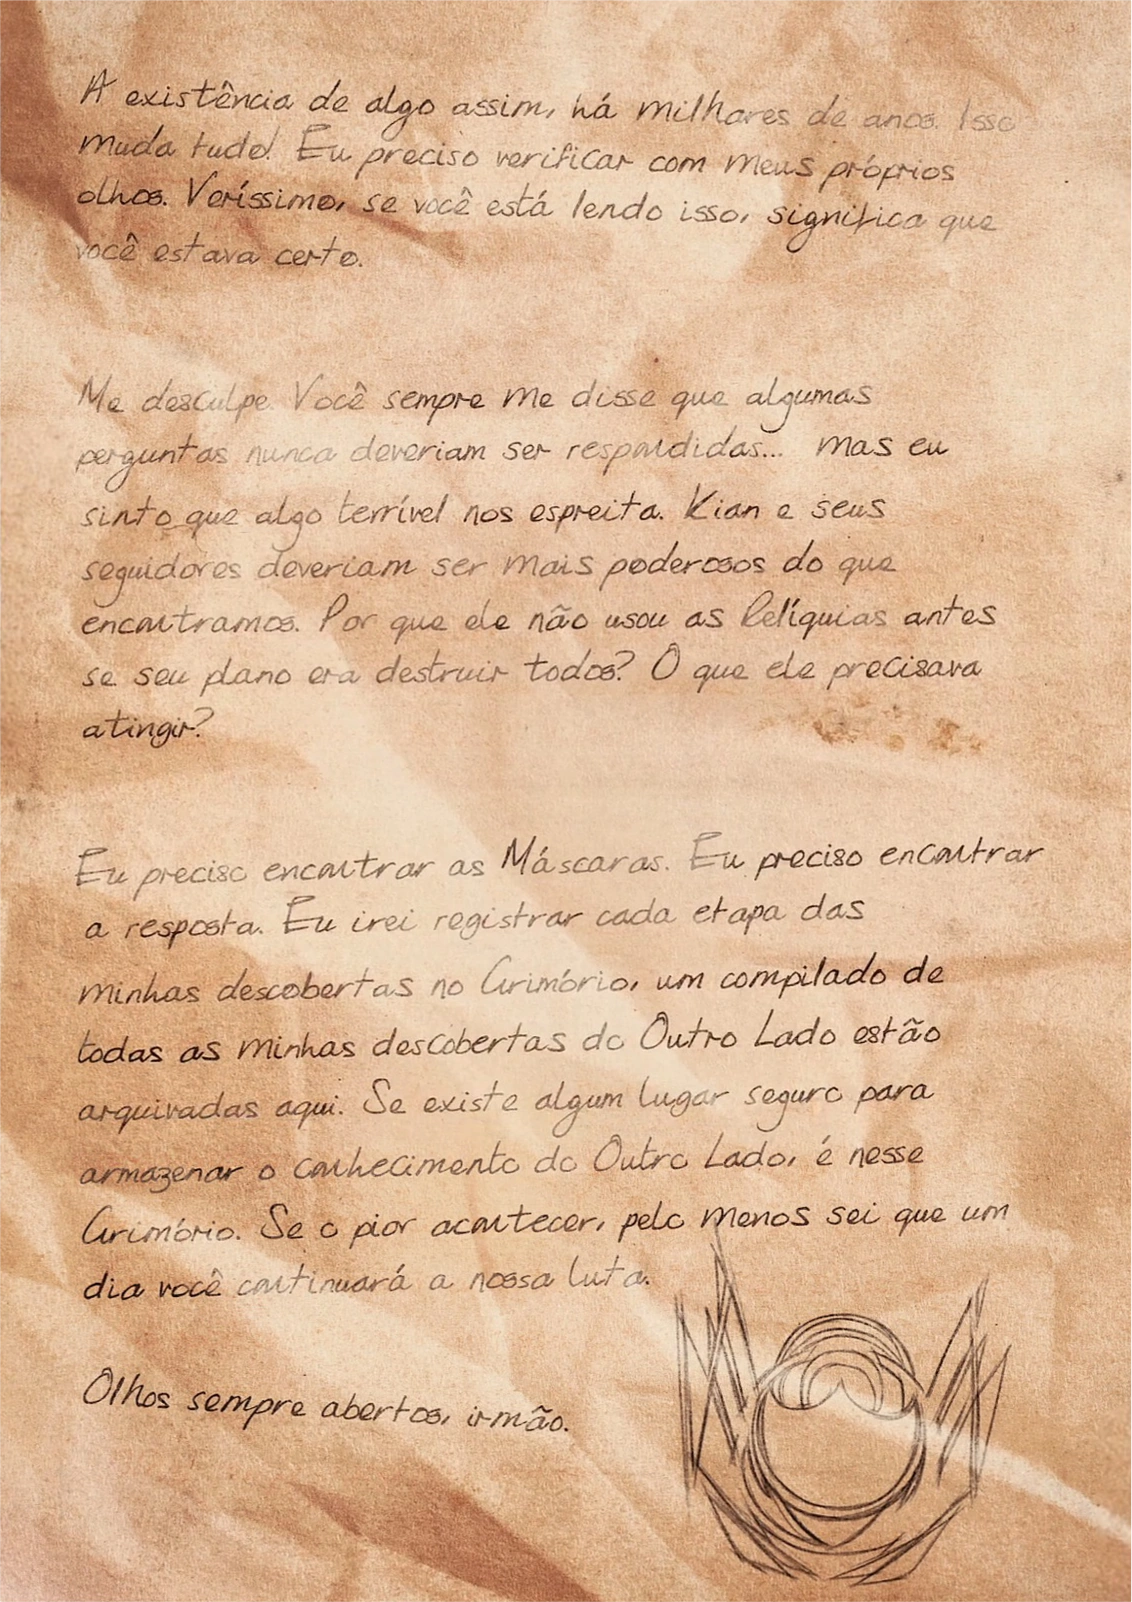 A existência de algo assim, há milhares de anos. Isso
muda tudo! Eu preciso verificar com meus próprios
olhos. Veríssimo, se você está lendo isso, significa que
você estava certo.
Me desculpe. Você sempre me disse que algumas
perguntas nunca deveriam ser respondidas... mas eu
sinto que algo terrível nos espreita. Kian e seus
seguidores deveriam ser mais poderosos do que
encontramos. Por que ele não usou as Relíquias antes
se seu plano era destruir todos? O que ele precisava
atingir?
Eu preciso encontrar as Máscaras. Eu preciso encontrar
a resposta. Eu irei registrar cada etapa das
minhas descobertas no Grimório, um compilado de
todas as minhas descobertas do Outro Lado estão
arquivadas aqui. Se existe algum lugar seguro para
armazenar o conhecimento do Outro Lado, é nesse
Grimório. Se o pior acontecer, pelo menos sei que um
dia você continuará a nossa luta.
Olhos sempre abertos, irmão.